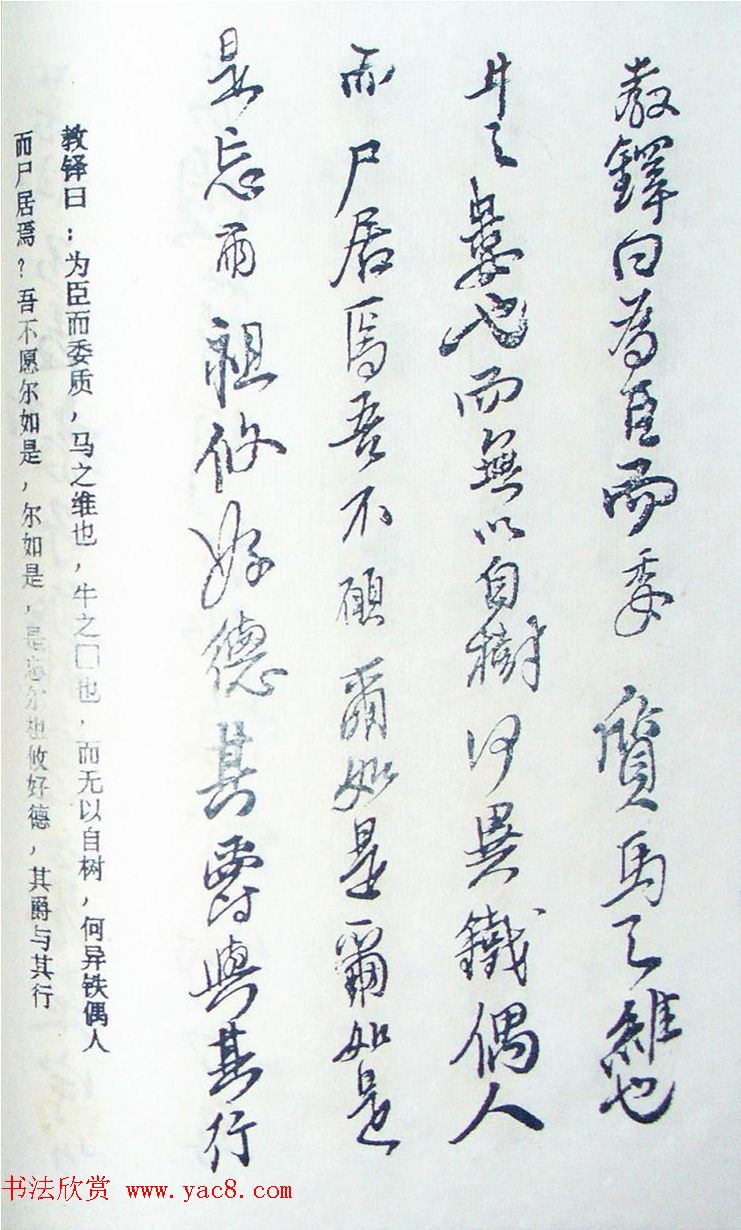 教鐸曰為臣而委質馬之維也
牛之也而無以自樹何異鐵偶人
而尸居焉吾不願爾如是爾如是
是忘爾祖攸好德其爵與其行
教铎曰：为臣而委质，马之维也，牛之□也，而无以自树，何异铁偶人
而尸居焉？吾不愿尔如是，尔如是，是忘尔祖攸好德，其爵与其行
书法欣赏 www.yac8.com